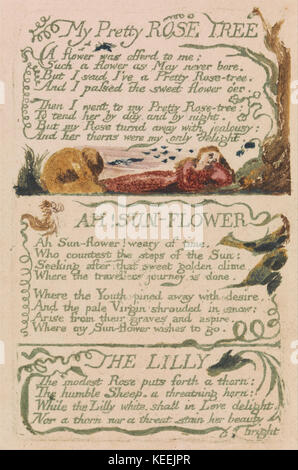 My Pretty ROSE TREE
A flower was offerd to me:
Such a flower as May never bore.
But I said I've a Pretty Rose-tree.
And I passed the sweet flower oer.
Then I went to my Pretty Rose-tree:
To tend her by day and by night.
But my Rose turnd away with jealousy:
And her thorns were my only delight.
AH! SUN-FLOWER
Ah Sun-flower! weary of time.
Who countest the steps of the Sun:
Seeking after that sweet golden clime
Where the travellers journey is done.
Where the Youth pined away with desire,
And the pale Virgin shrouded in snow:
Arise from their graves and aspire,
Where my Sun-flower wishes to go.
THE LILLY
The modest Rose puts forth a thorn:
The humble Sheep, a threatning horn:
While the Lilly white, shall in Love delight,
Nor a thorn nor a threat stain her beauty
bright
alamy
Image ID: KEEJPR
www.alamy.com